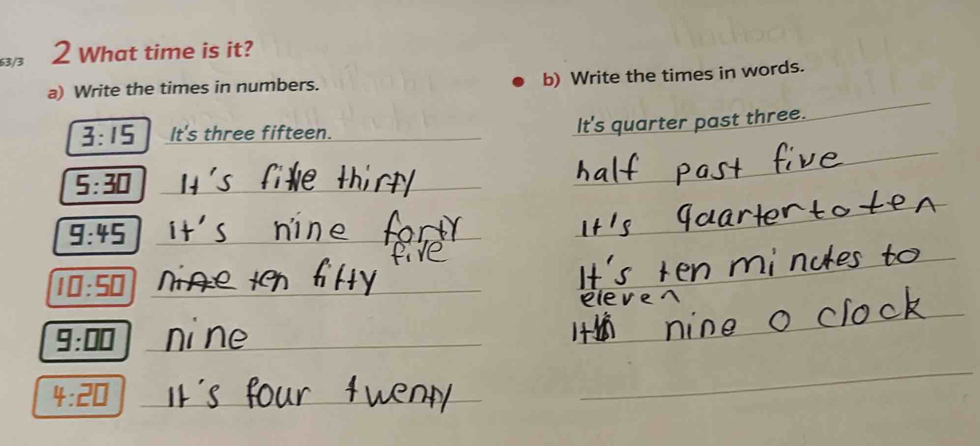 63/3 2 What time is it?
a) Write the times in numbers.
b) Write the times in words.
3:15 It's three fifteen.
It's quarter past three.
5:30 It's five thirty
half past five
9:45 it's nine forty
five
It's quarter to ten
10:50 nine ten fifty
It's ten minutes to
eleven
9:00 nine
It's nine o clock
4:20 It's four twenty